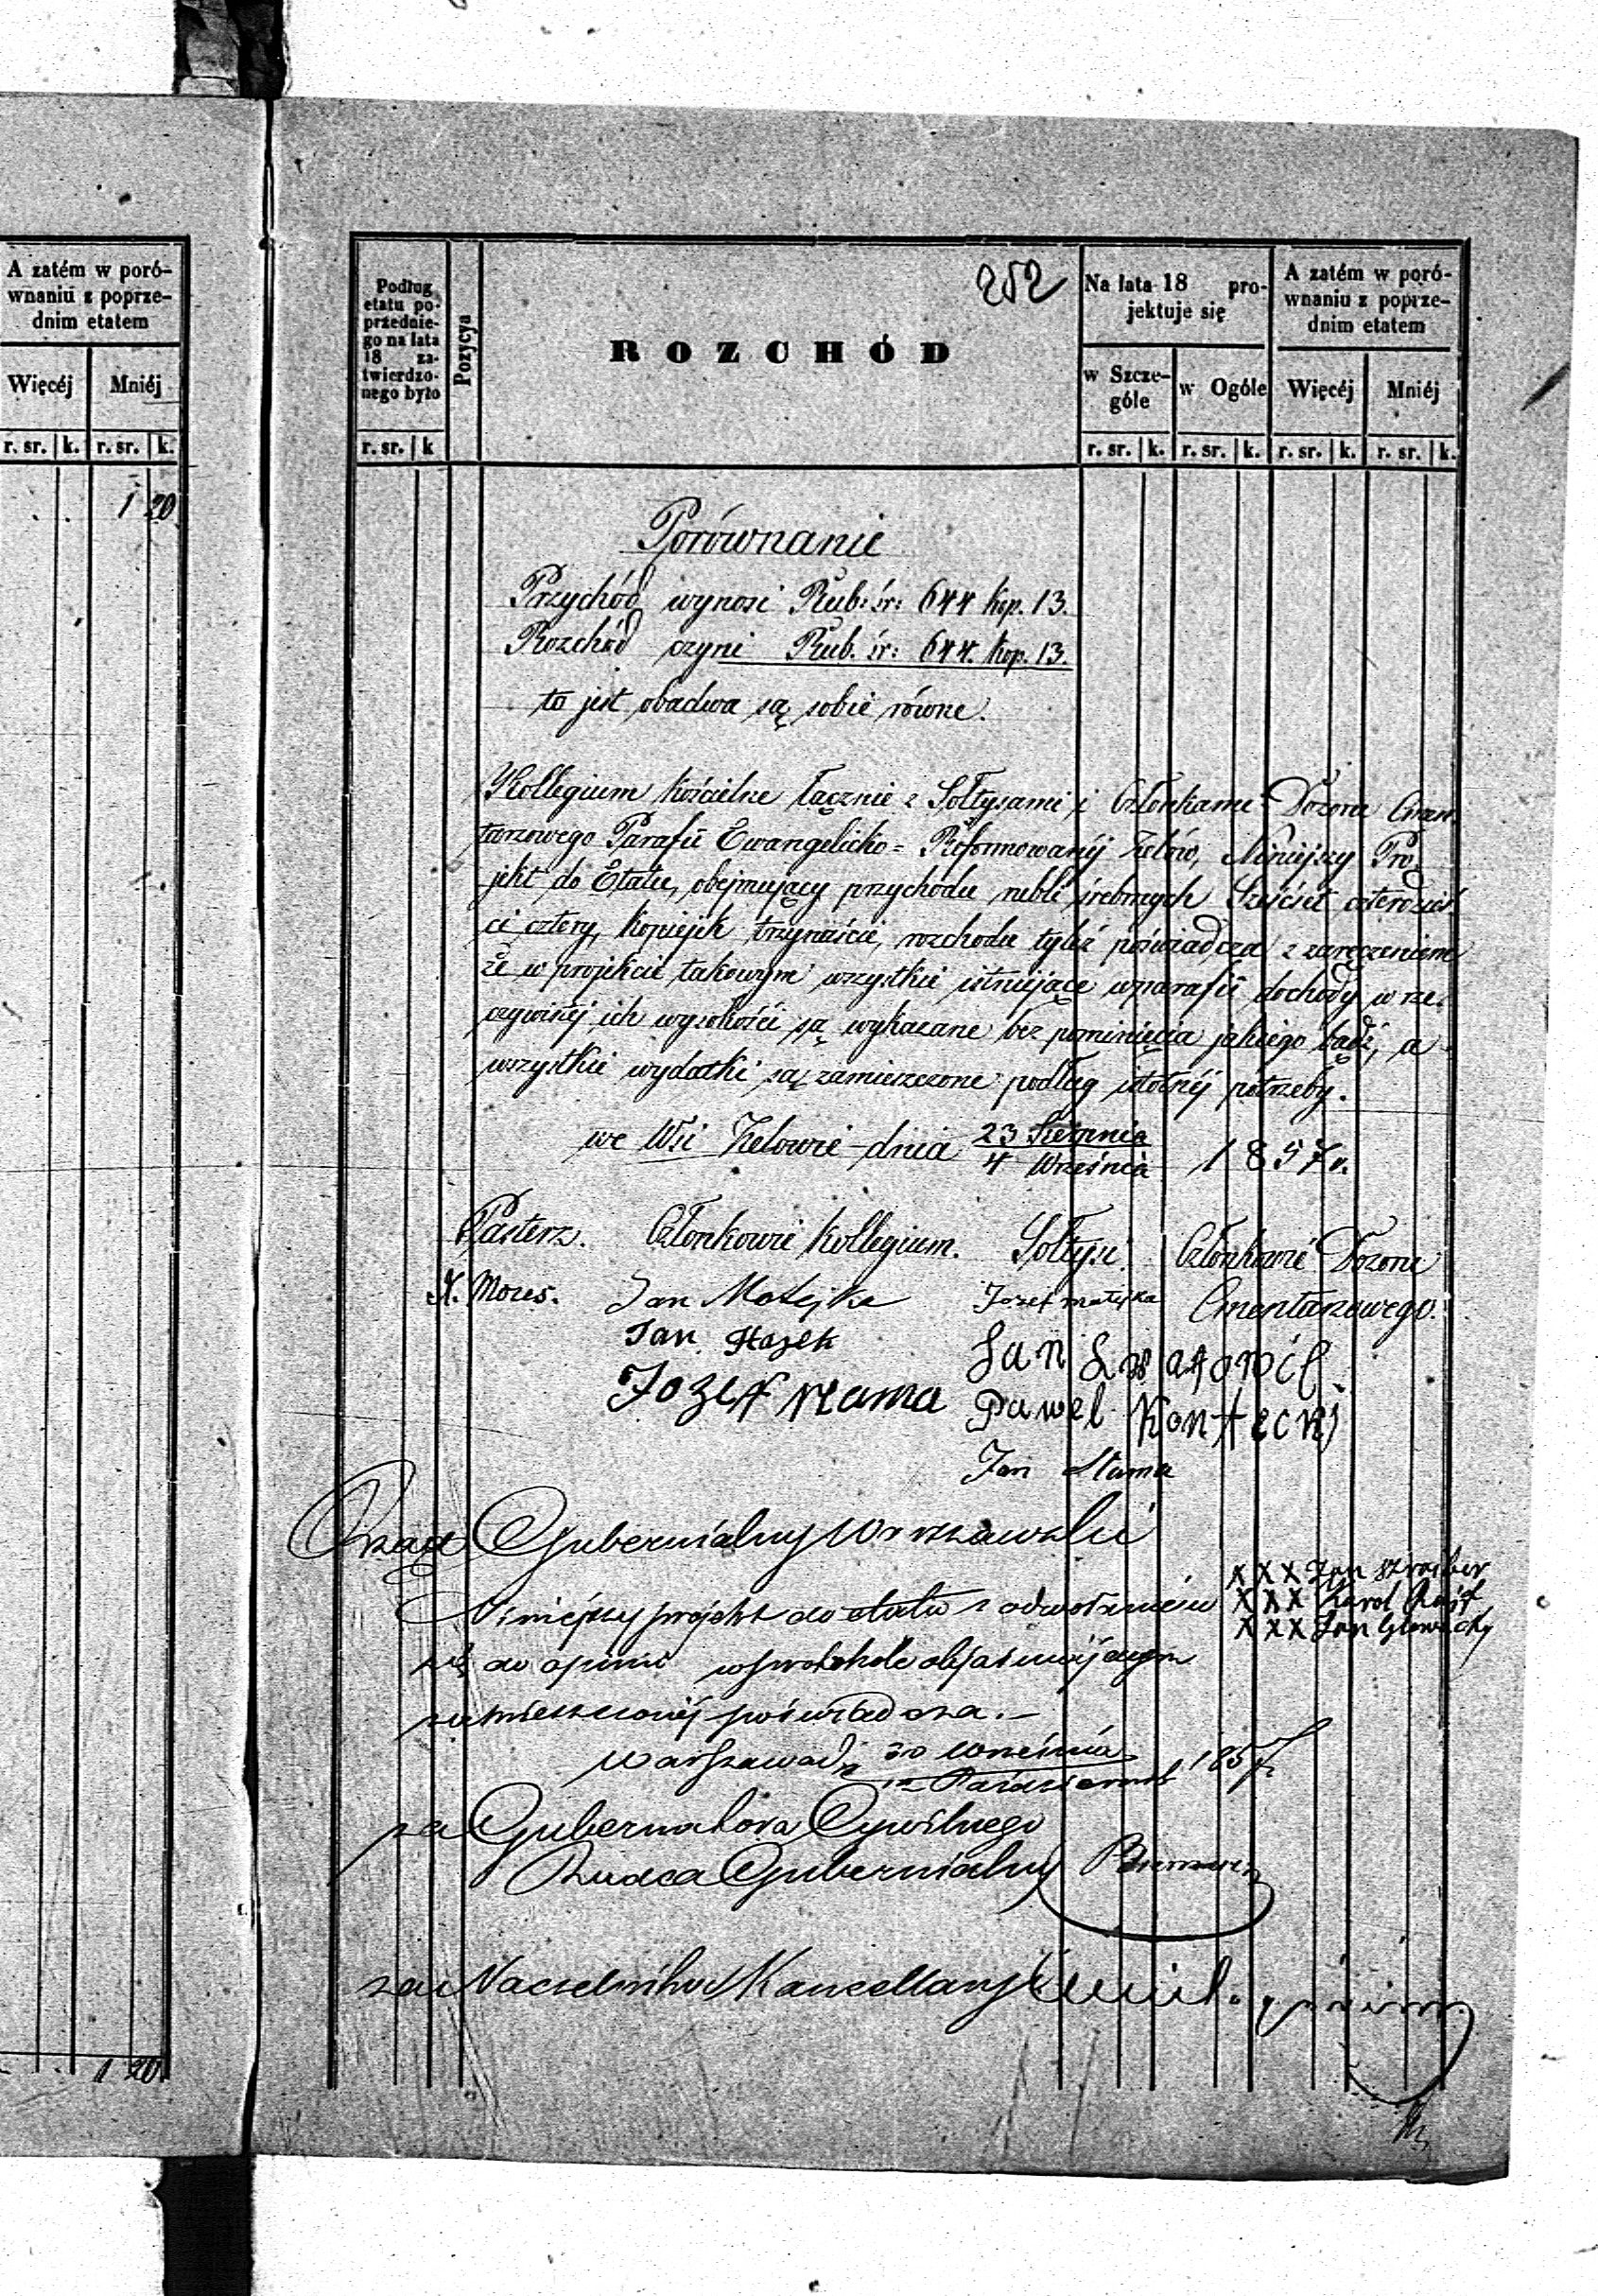 A zatém w poró-
wnaniu z poprze-
dnim etatem
Więcéj Mniéj
r. sr. k. r. sr. k.
1 20
1 20
252
Podług
etatu po-
przednie-
go na lata
18 za-
twierdzo-
nego było
r. sr. k
Pozycya
ROZCHÓD
Na lata 18 pro-
jektuje się
w Szcze-
góle
w Ogóle
r. sr. k. r. sr. k.
A zatém w poró-
wnaniu z poprze-
dnim etatem
Więcéj Mniéj
r. sr. k. r. sr. k.
Porównanie
Przychód wynosi Rub: śr: 644 Kop. 13.
Rozchód czyni Rub. śr: 644. Kop. 13.
to jest obadwa są sobie równe.
Kollegium Kościelne łącznie z Sołtysami i Członkami Dozoru Cmen-
tarzowego Parafii Ewangelicko=Reformowanéj Zelów, Niniejszy Pro-
jekt do Etatu, obejmujący przychodu rubli śrebrnych Sześćset czterdzieś-
ci cztery, Kopiejek trzynaście, rozchodu tyleż poświadcza z zaręczeniem
że w projekcie takowym wszystkie istniejące w parafii dochody w rze-
czywistéj ich wysokości są wykazane bez pominięcia jakiego bądź, a
wszystkie wydatki są zamieszczone podług istotnéj potrzeby.
we Wsi Zelowie dnia 23 Sierpnia / 4 Września 1857 r.
Pasterz. Członkowie Kollegium. Sołtysi. Członkowie Dozoru
Cmentarzowego.
X. Mozes. Jan Matejka Jozef matejka
Jan Hajek
Jozef
Jan
Pawel Kontecki
Jan Slama
Rząd Gubernialny Warszawski
XXX Jan Szraiber
XXX Karol
XXX Jan Głowacky
Niniejszy projekt do etatu z odwołaniem
się do opinii w protokole objaśniającym
zamieszczonéj poświadcza.–
Warszawa d. 30 Września / 12 Października 1857 r.
za Gubernatora Cywilnego
Radca Gubernialny
za Naczelnika Kancellaryi